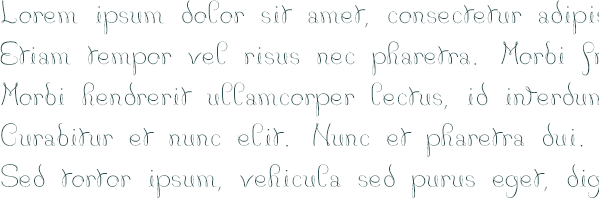 Lorem ipsum dolor sit amet, consectetur adipis
Etiam tempor vel risus nec pharetra. Morbi fr
Morbi hendrerit ullamcorper lectus, id interdum
Curabitur et nunc elit. Nunc et pharetra dui.
Sed tortor ipsum, vehicula sed purus eget, dig